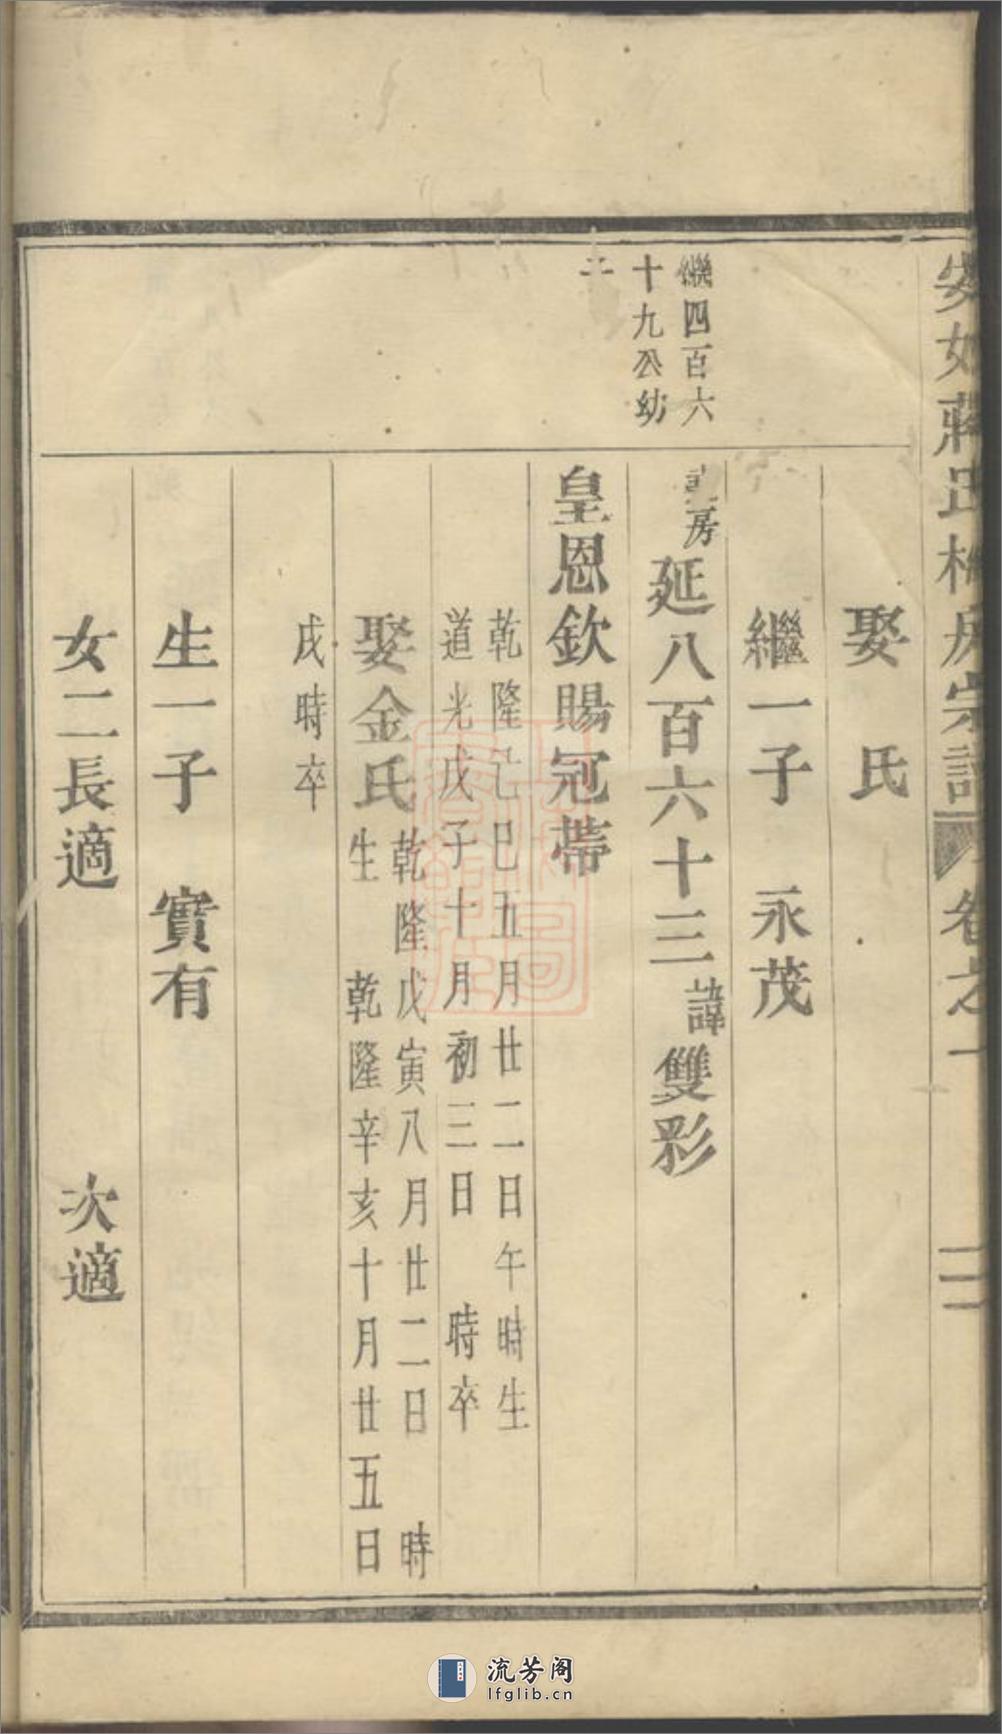 蔣氏梅房宗譜 卷之一 二
娶 氏
繼一子 永茂
繼四百六
十九公幼
子
房延八百六十三諱雙彩
皇恩欽賜冠帶
乾隆己巳五月廿二日午時生
道光戊子十月初三日 時卒
娶金氏
乾隆戊寅八月廿二日 時
生 乾隆辛亥十月廿五日
戌時卒
生一子 實有
女二長適 次適
流芳阁
lfglib.cn